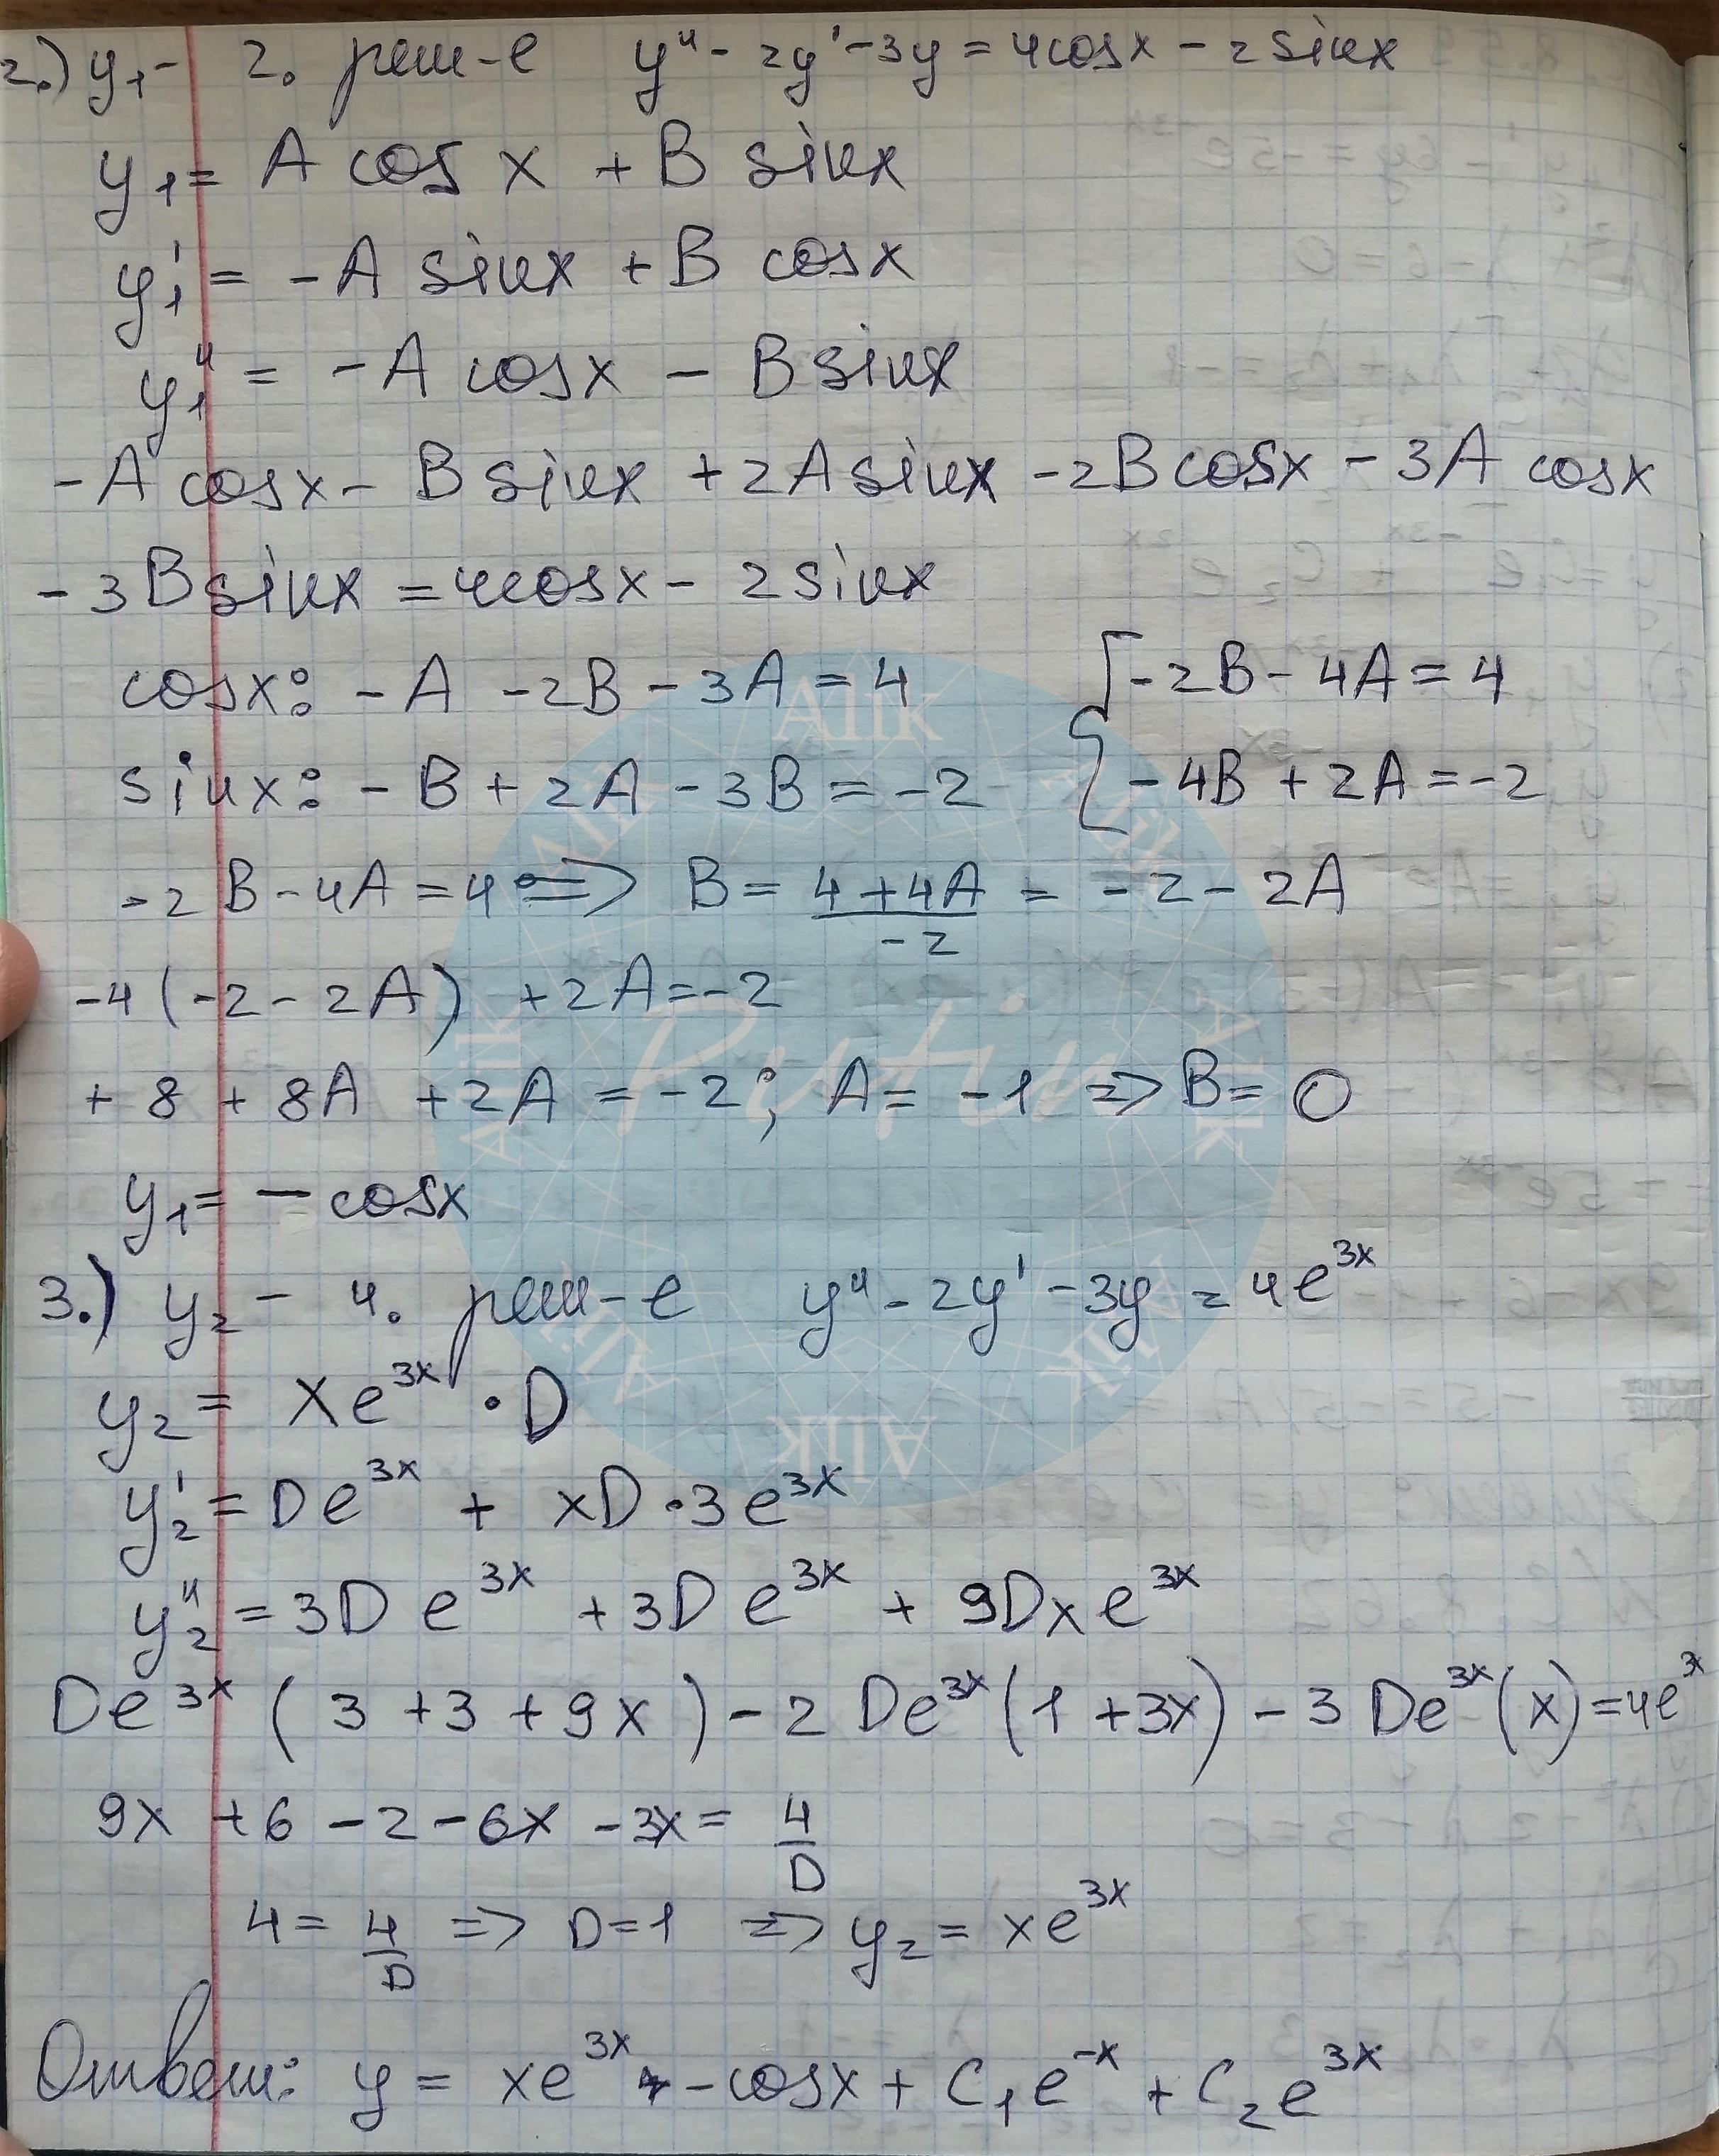 2.) y₁ - 2. реш-е y'' - 2y' - 3y = 4cosx - 2sinx
y₁ = A cos x + B sinx
y₁' = -A sinx + B cosx
y₁'' = -A cosx - B sinx
-A cosx - B sinx + 2A sinx - 2B cosx - 3A cosx
- 3B sinx = 4cosx - 2 sinx
cosx: -A -2B - 3A = 4 { -2B - 4A = 4
sinx: -B + 2A - 3B = -2 -4B + 2A = -2
-2B - 4A = 4 => B = (4+4A)/(-2) = -2 - 2A
-4(-2 - 2A) + 2A = -2
+ 8 + 8A + 2A = -2; A = -1 => B = 0
y₁ = - cosx
3.) y₂ - ч. реш-е y'' - 2y' - 3y = 4e^{3x}
y₂ = xe^{3x} · D
y₂' = De^{3x} + xD · 3e^{3x}
y₂'' = 3D e^{3x} + 3D e^{3x} + 9Dx e^{3x}
De^{3x} (3 + 3 + 9x) - 2 De^{3x}(1 + 3x) - 3 De^{3x}(x) = 4e^{3x}
9x + 6 - 2 - 6x - 3x = 4/D
4 = 4/D => D = 1 => y₂ = xe^{3x}
Ответ: y = xe^{3x} - cosx + C₁e^{-x} + C₂e^{3x}
Alik
Alik
Alik
Alik
Alik
Alik
Alik
Alik
Putin